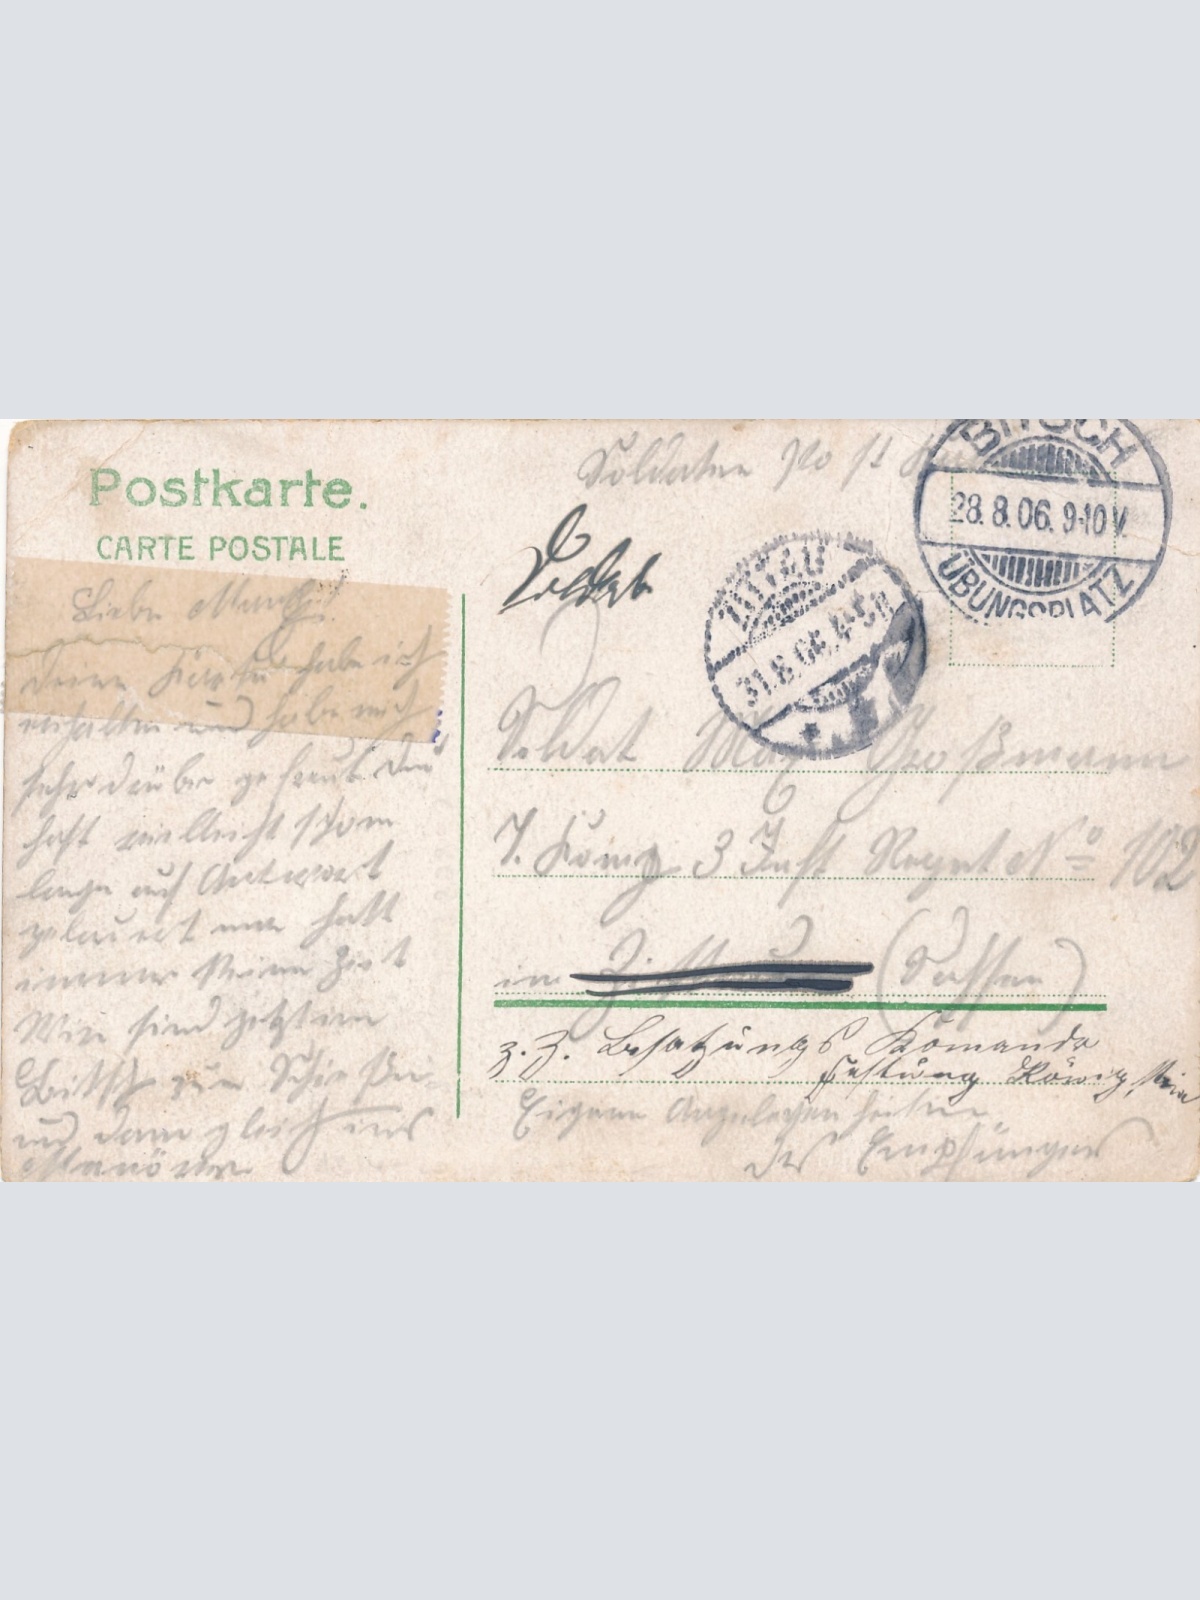 Postkarte.
CARTE POSTALE
Soldaten
BITSCH
28. 8. 06. 9-10 V.
ÜBUNGSPLATZ
ZITTAU
31. 8. 06. 4-5 N
Soldat
Soldat Max Großmann
7. König 3 Inft Regmt No 102
in Zittau (Sachsen)
z. Z. Besatzungs Komando
Festung König
Eigene Angelegenheiten
des Empfängers
Liebe
Deine Karte habe ich
erhalten und habe mich
sehr drüber gefreut Du
hast vielleicht schon
lange auf Antwort
gelauert nur hatt
immer keine Zeit
Wir sind jetzt in
Bitsch zum Schießen
und dann gleich ins
Manöver